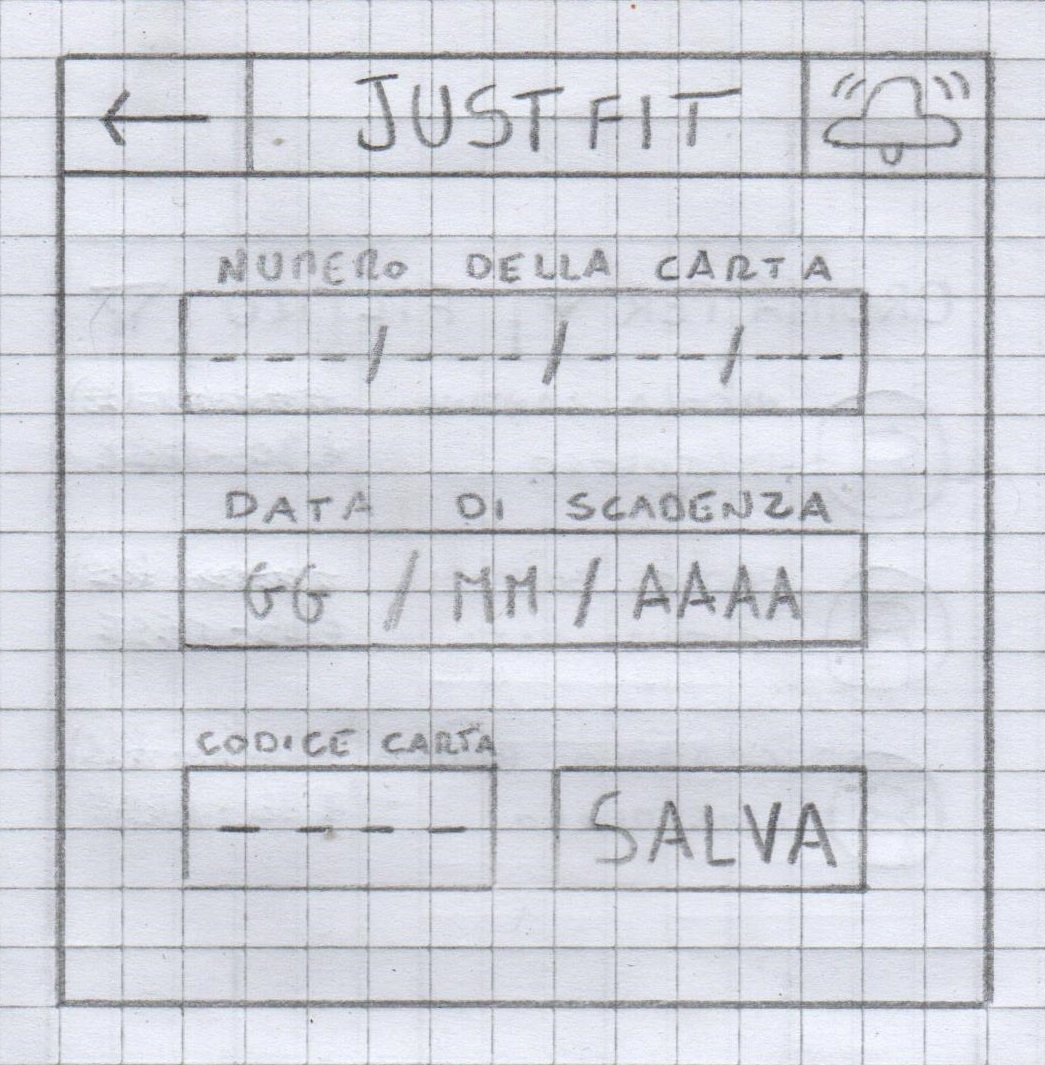 JUSTFIT
NUMERO DELLA CARTA
- - - - / - - - - / - - - - / - - - -
DATA DI SCADENZA
GG / MM / AAAA
CODICE CARTA
- - - -
SALVA